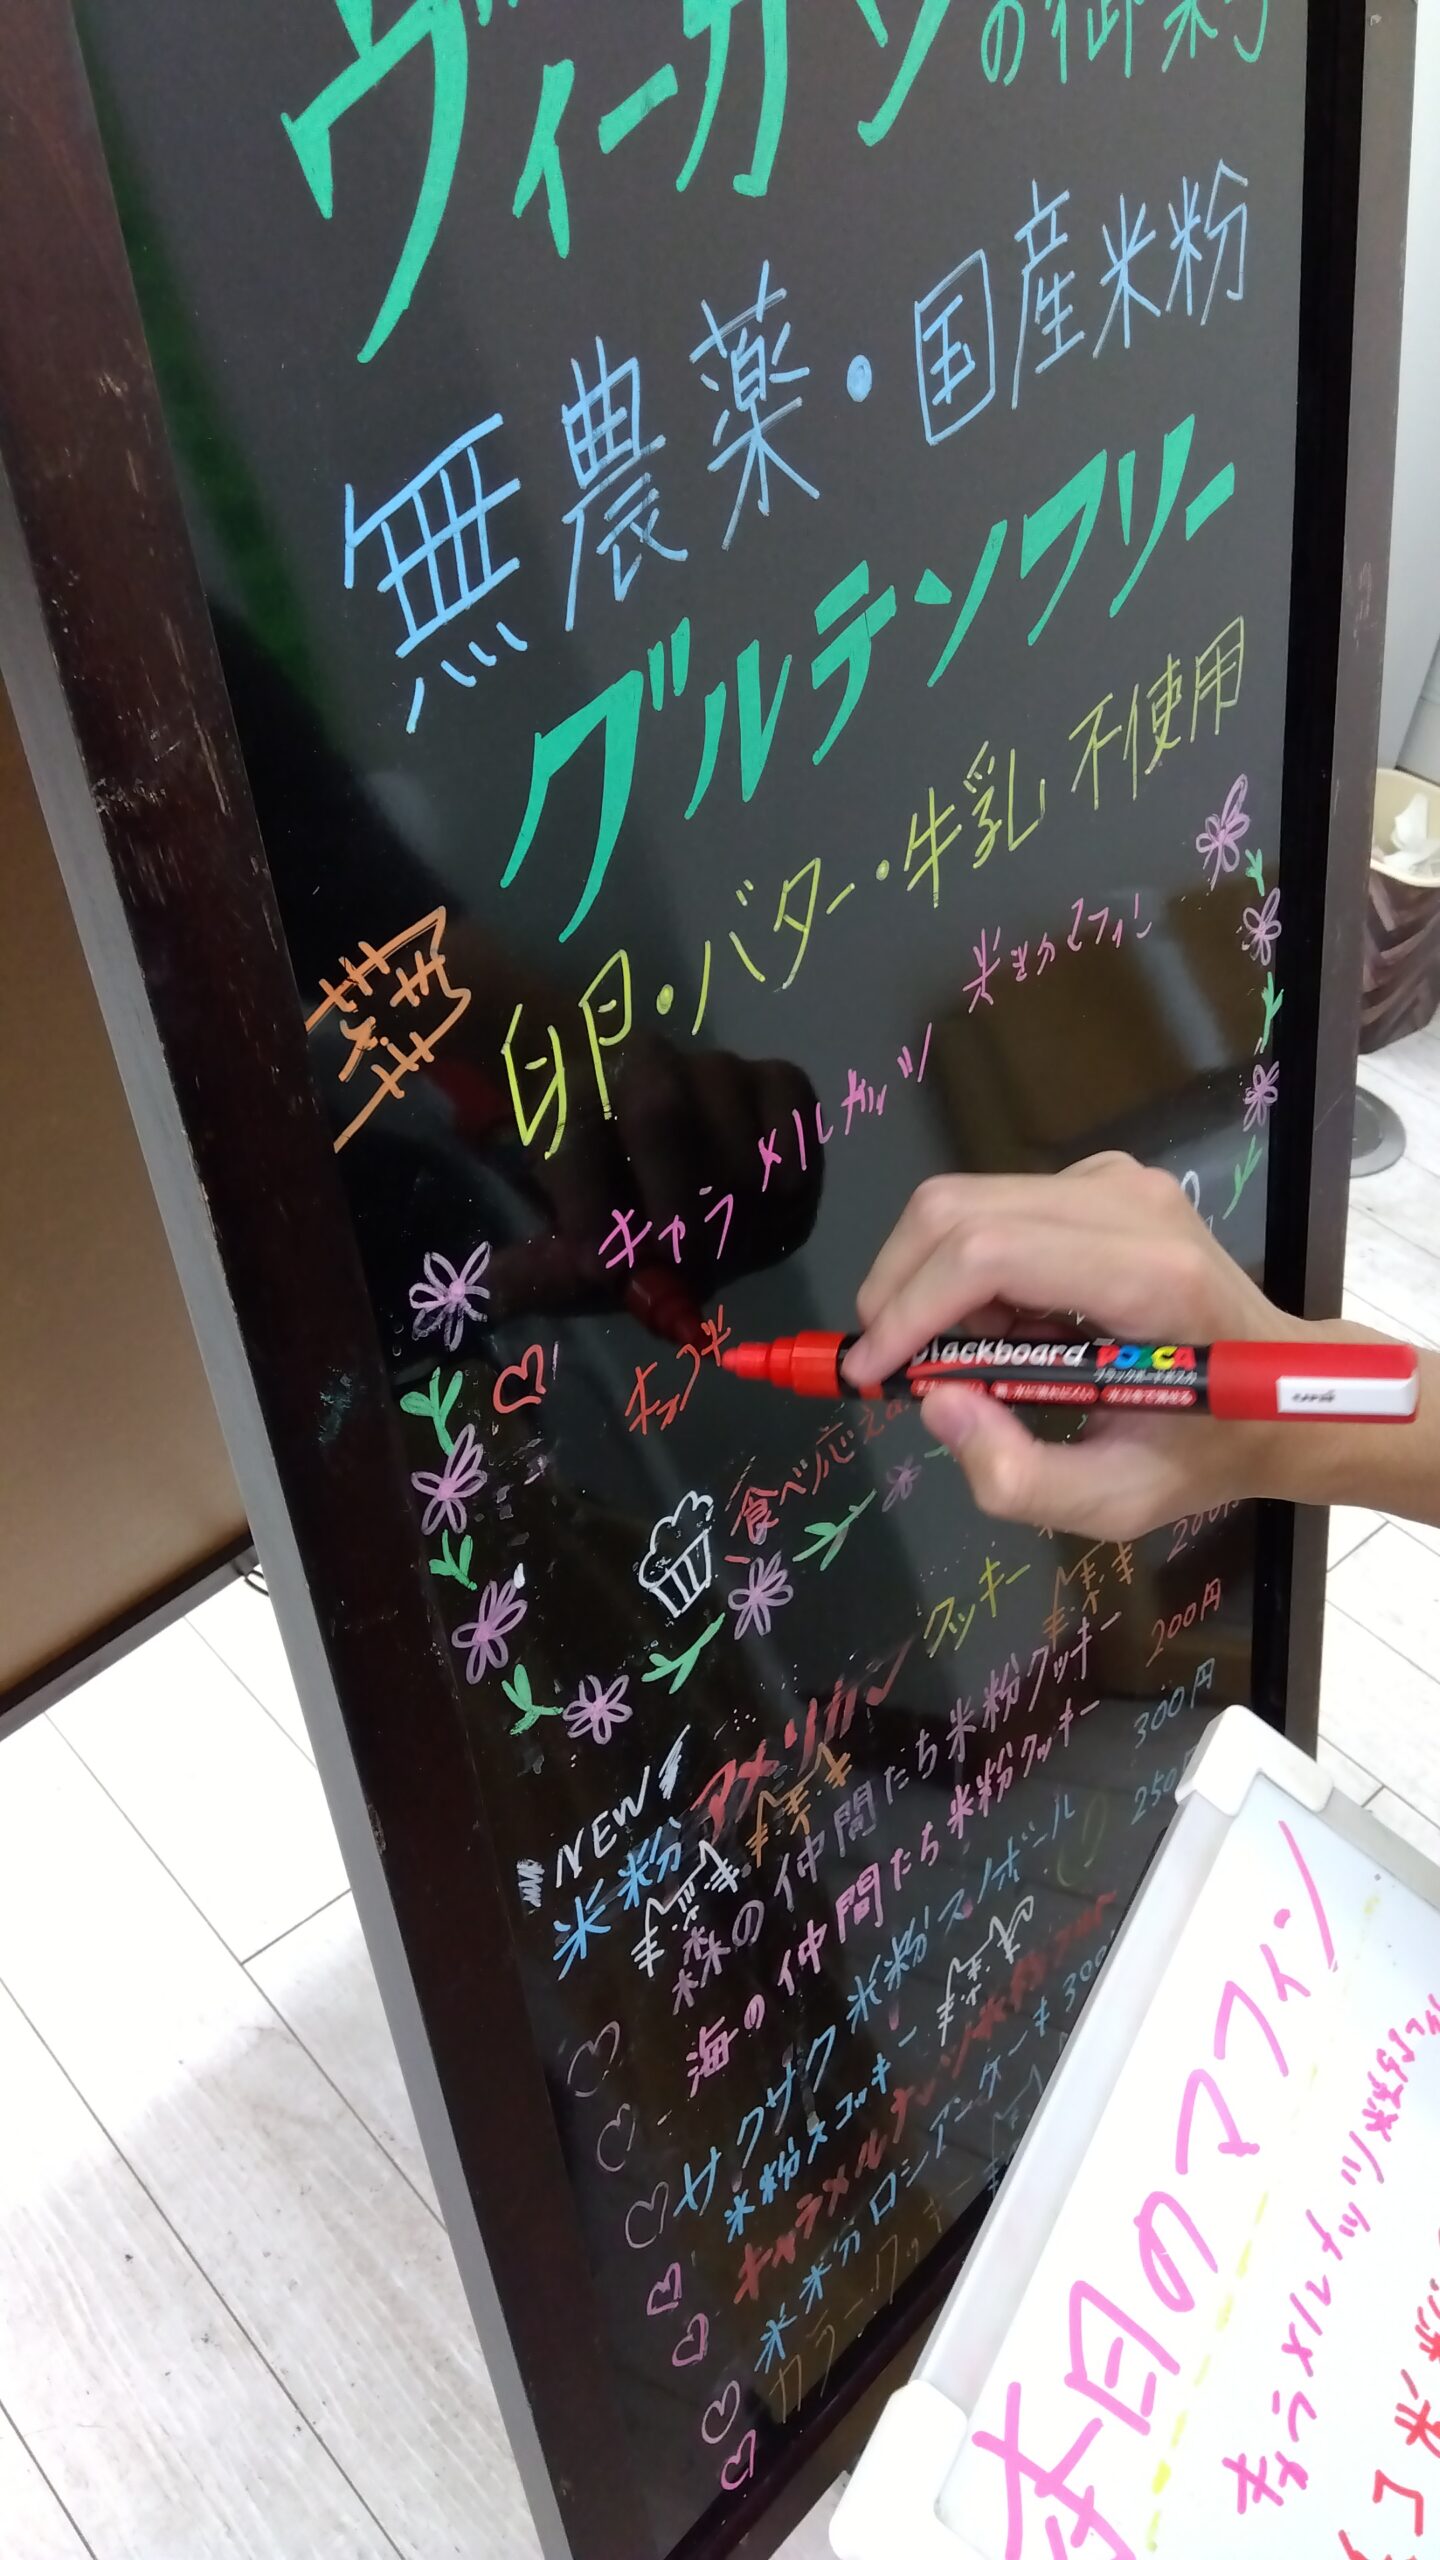 ヴィーガンの御菓子
無農薬・国産米粉
グルテンフリー
卵・バター・牛乳 不使用
キャラメルナッツ 米粉マフィン
blackboard POSCA
ブラックボードポスカ
uni
食べ応え
クッキー
200円
NEW
米粉 アメリカン
森の仲間たち米粉クッキー 200円
海の仲間たち米粉クッキー 300円
サクサク 米粉スノーボール 250円
米粉スコッキー
キャラメルナッツ
米粉ロシアンクッキー 300
カラークッキー
本日のマフィン
キャラメルナッツ米粉